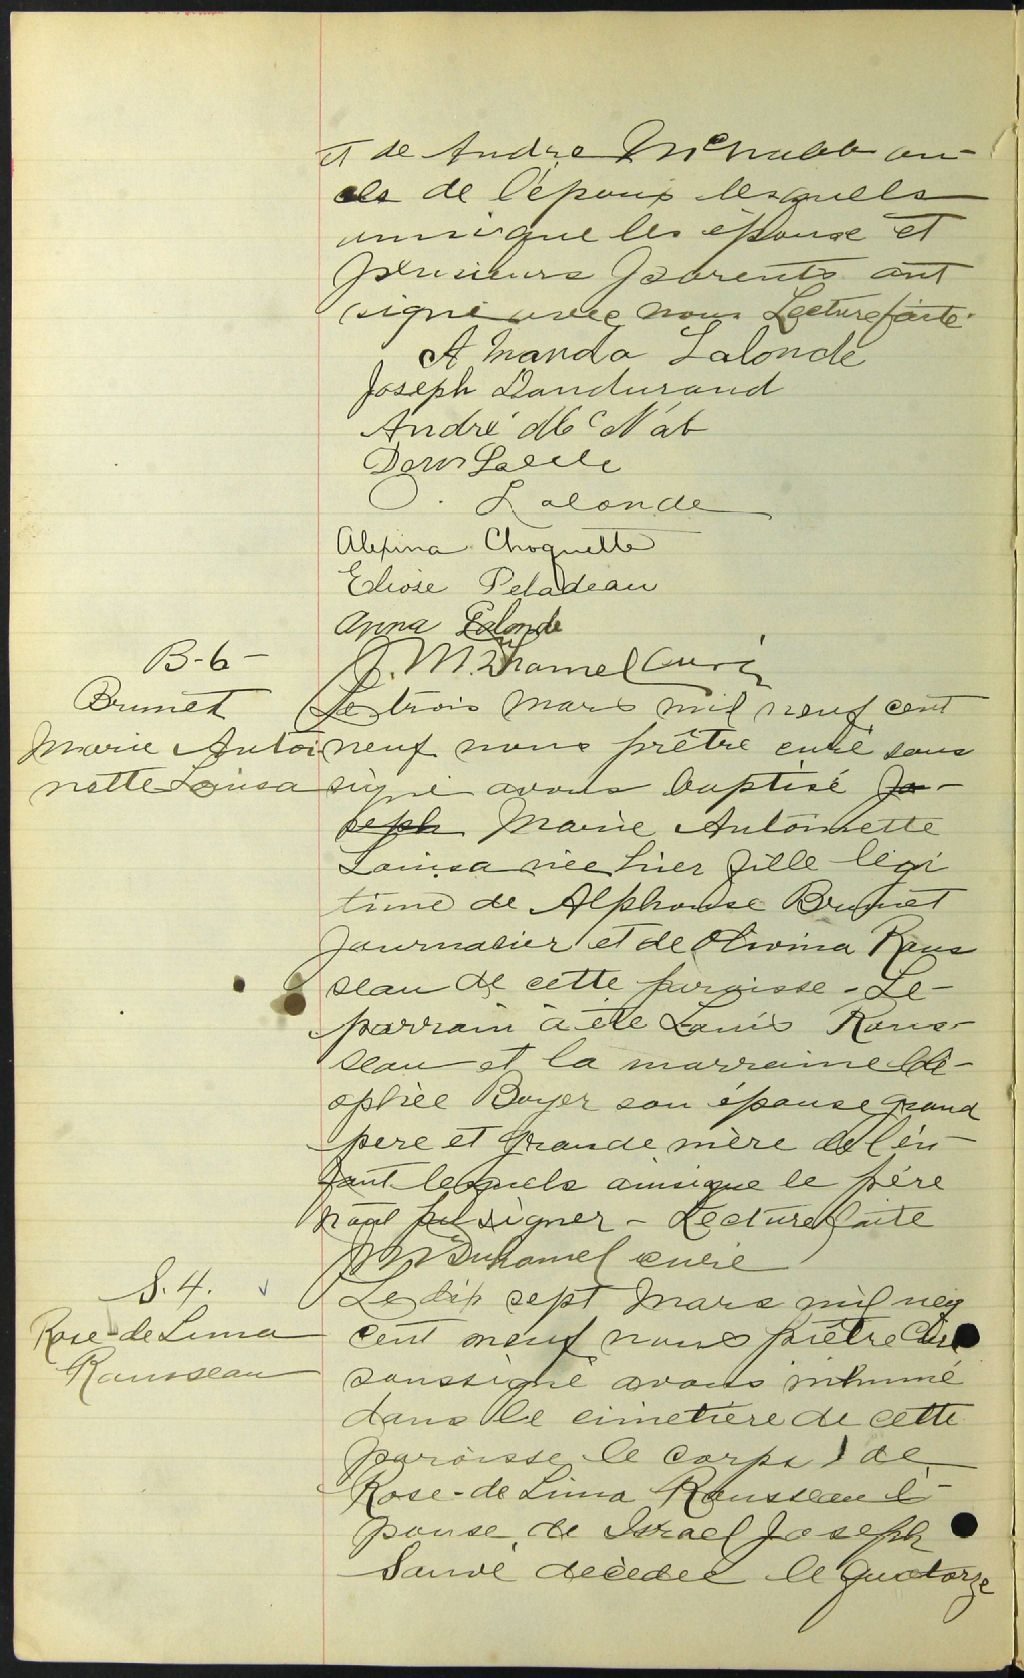 et de André McNabb on-
cle de l'époux lesquels
ainsi que les épouse et
plusieurs parents ont
signé avec nous Lecture faite.
Amanda Lalonde
Joseph Dandurand
André McNab
Lalonde
Alexina Choquette
Eliose Peladeau
Anna Lalonde
J. M. Duhamel Curé
B-6-
Brunet
Marie Antoi
nette Louisa
Le trois mars mil neuf cent
neuf nous prêtre curé sous
signé avons baptisé Jo-
seph Marie Antoinette
Louisa née hier fille légi
time de Alphonse Brunet
journalier et de Olivina Rous
seau de cette paroisse - Le
parrain a été Louis Rous-
seau et la marraine Clé-
ophée Boyer son épouse grand
pere et grande mère de l'en-
fant lesquels ainsique le père
n'ont pu signer - Lecture faite
J M Duhamel curé
S. 4.
Rose-de Lima
Rousseau
Le dix sept Mars mil neuf
cent neuf nous prêtre Curé
soussigné avons inhumé
dans le cimetière de cette
paroisse le corps de
Rose-de Lima Rousseau é-
pouse de Israel Joseph
Sauvé décédée le quatorze